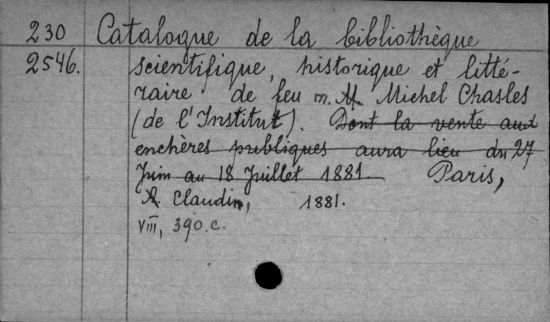 230 Catalogue de la bibliothèque
2546. scientifique, historique et litté-
raire de feu m. M. Michel Chasles
(de l'Institut). Dont la vente aux
enchères publiques aura lieu du 27
Juin au 18 Juillet 1881. Paris,
A. Claudin, 1881.
VIII, 390.c.